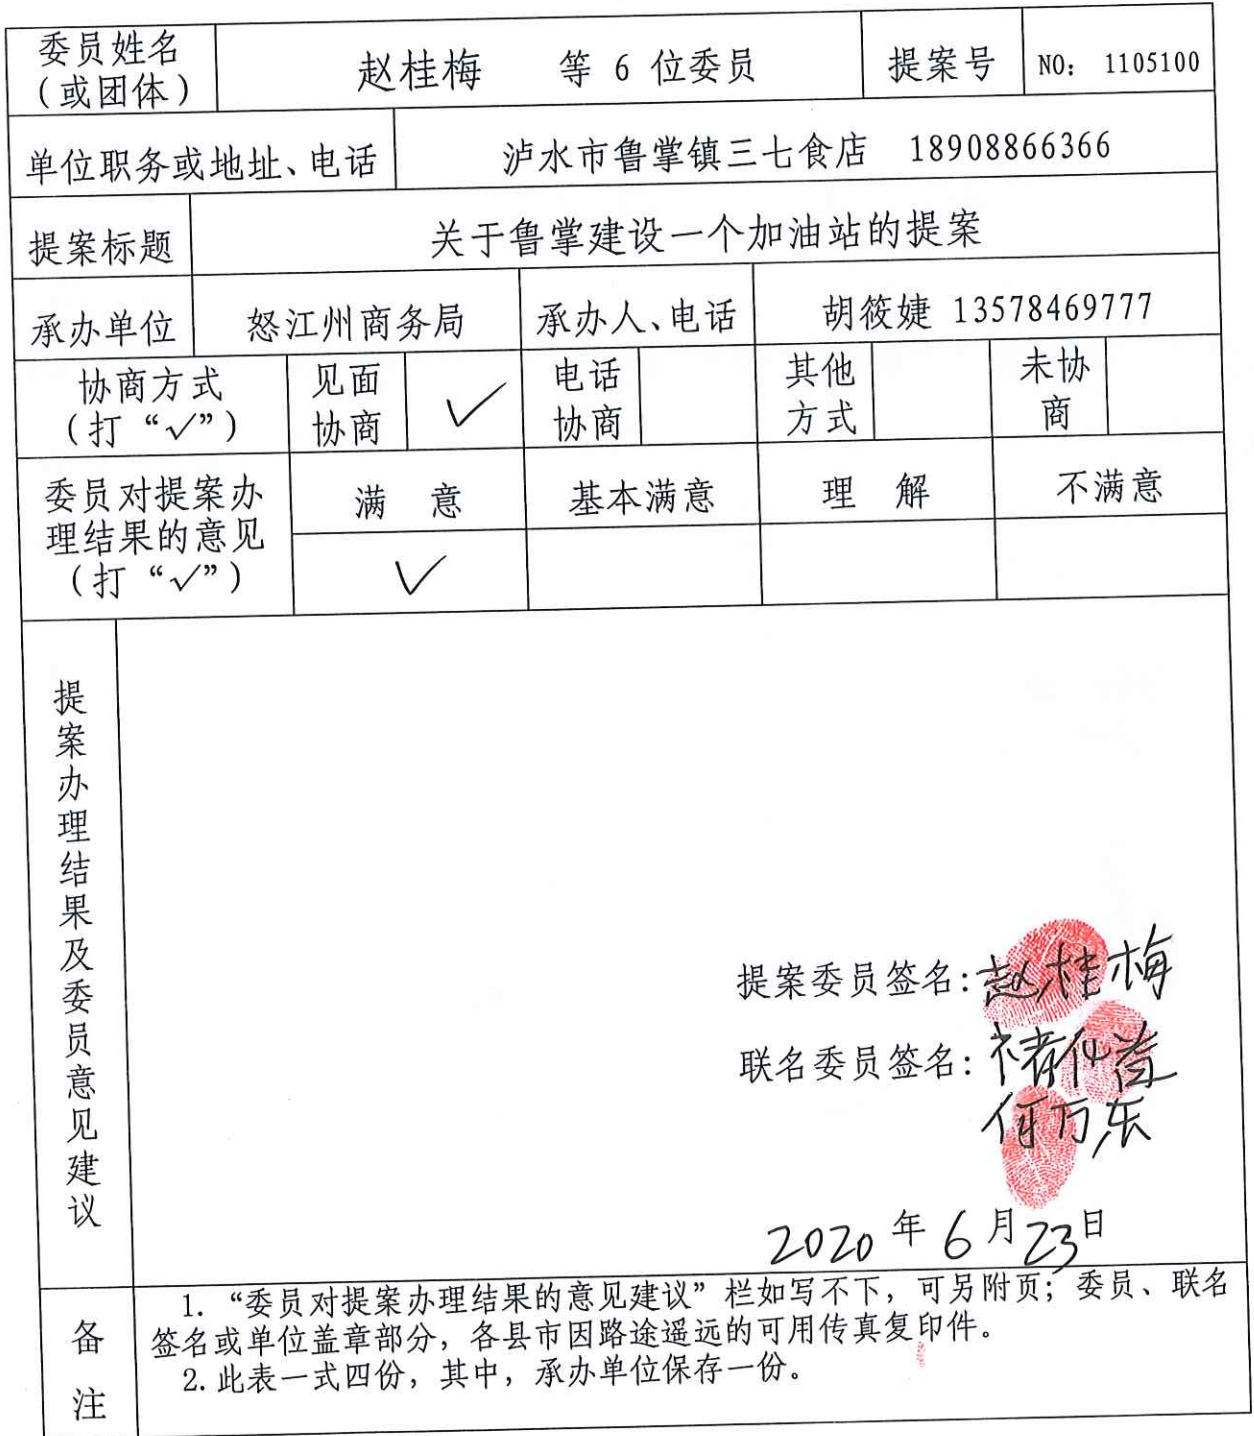 委员姓名
（或团体）
赵桂梅 等 6 位委员
提案号
NO: 1105100
单位职务或地址、电话
泸水市鲁掌镇三七食店 18908866366
提案标题
关于鲁掌建设一个加油站的提案
承办单位
怒江州商务局
承办人、电话
胡筱婕 13578469777
协商方式
（打“√”）
见面
协商
✓
电话
协商
其他
方式
未协
商
委员对提案办
理结果的意见
（打“√”）
满 意
基本满意
理 解
不满意
✓
提案办理结果及委员意见建议
提案委员签名：赵桂梅
联名委员签名：
2020 年 6 月 23 日
备
注
1. “委员对提案办理结果的意见建议”栏如写不下，可另附页；委员、联名
签名或单位盖章部分，各县市因路途遥远的可用传真复印件。
2. 此表一式四份，其中，承办单位保存一份。